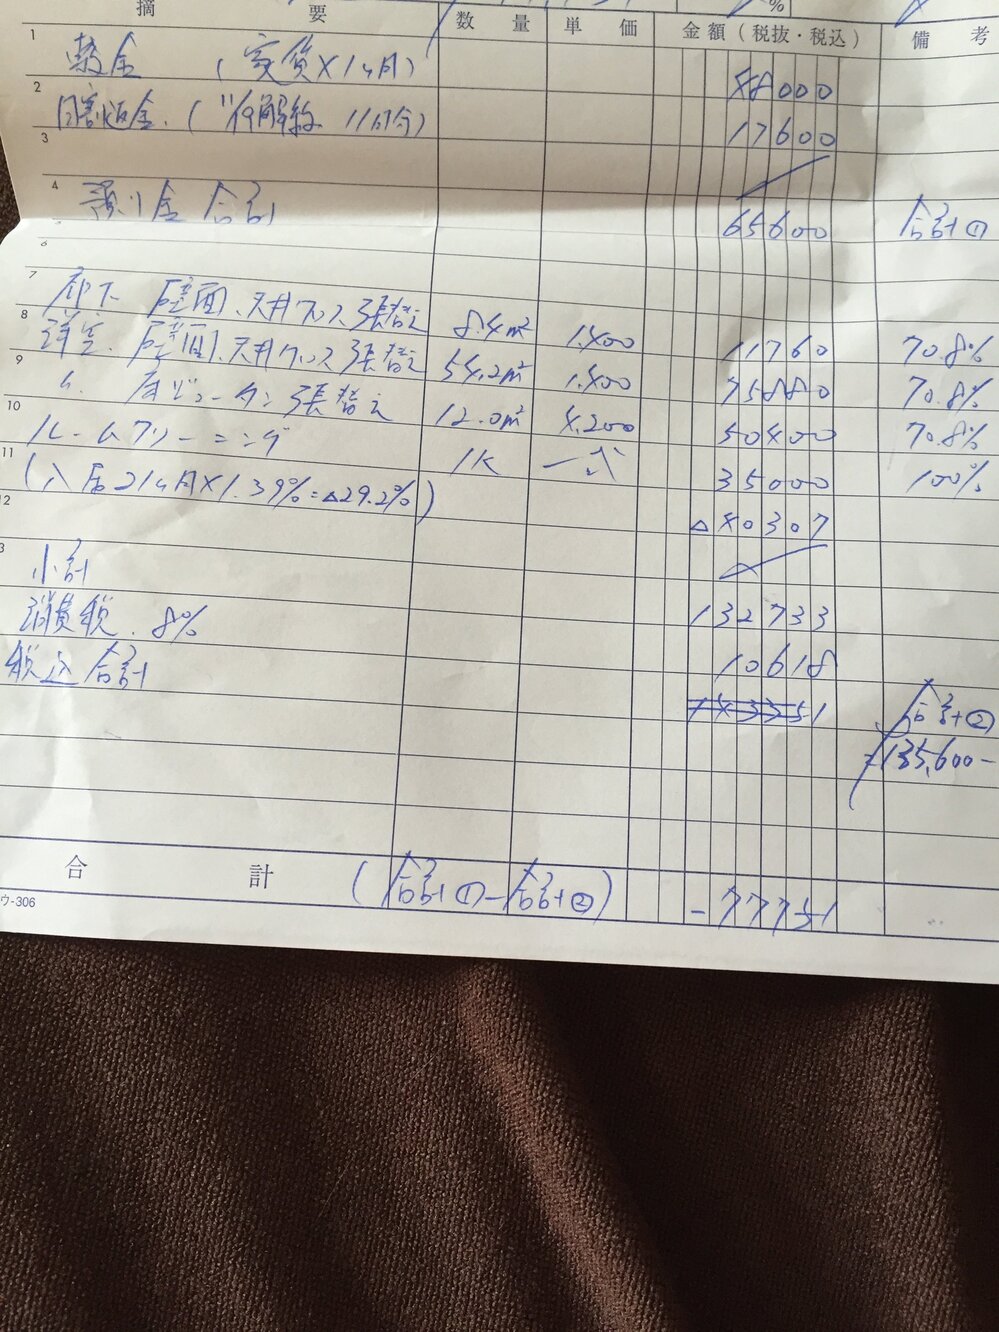 %
摘 要 数量 単価 金額（税抜・税込） 備考
1 敷金 （家賃×1ヶ月） 48000
2 日割返金（11/19解約 11日分） 17600
3
4 預り金 合計 65600 合計①
5
6
7 廊下 壁面、天井クロス張替え 8.4m² 1.400 11760 70.8%
8 洋室、壁面、天井クロス張替え 54.2m² 1.400 75880 70.8%
9 〃 床ビニールタン張替え 12.0m² 4.200 50400 70.8%
10 ルームクリーニング 1K 一式 35000 100%
11 （入居21ヶ月×1.39%=△29.2%） △40307
12
3 小計 132733
消費税 8% 10618
税込合計 143351 合計②
=135,600-
合計 （合計①-合計②） -77751
ウ-306